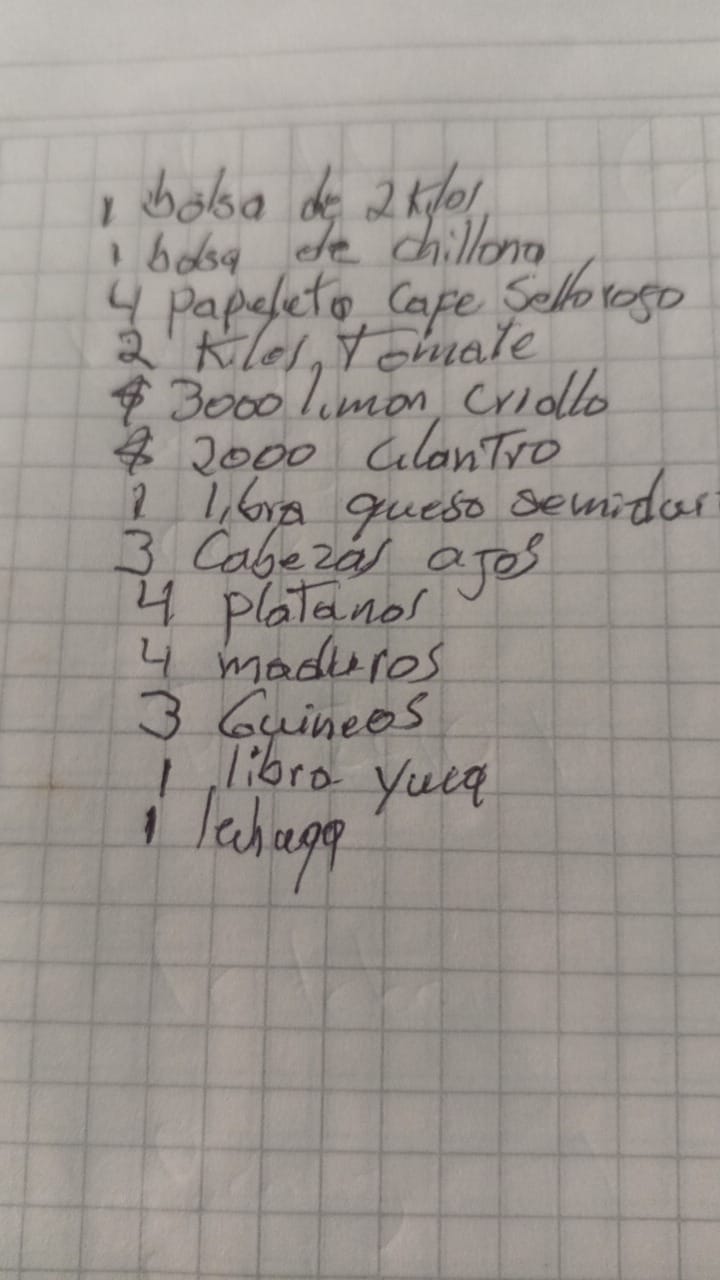 1 bolsa de 2 Kilos
1 bolsa de chillona
4 papeleta Cafe Selloroso
2 Kilos, tomate
$ 3000 limon Criollo
$ 2000 Cilantro
1 libra queso semidur
3 Cabezas ajos
4 platanos
4 maduros
3 Guineos
1 libra Yuca
1 lechuga